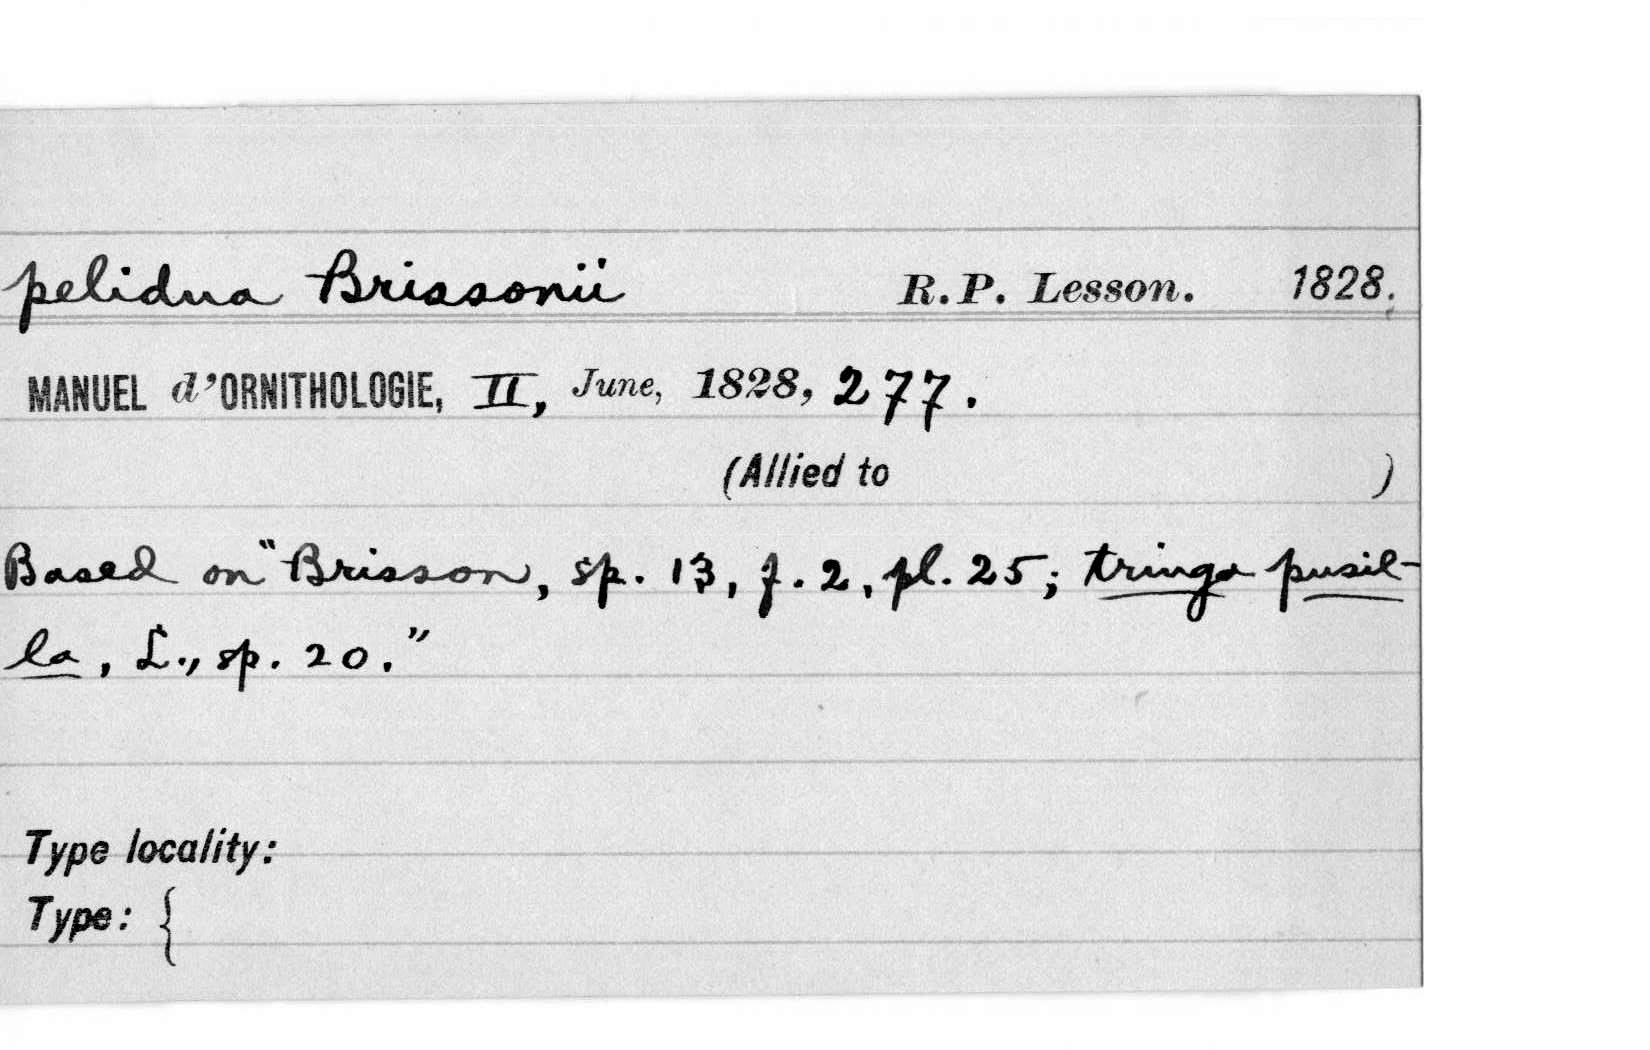 pelidna Brissonii R.P. Lesson. 1828.
MANUEL d'ORNITHOLOGIE, II, June, 1828, 277.
(Allied to )
Based on "Brisson, sp. 13, f. 2, pl. 25; tringa pusil-
la, L., sp. 20."
Type locality:
Type: {